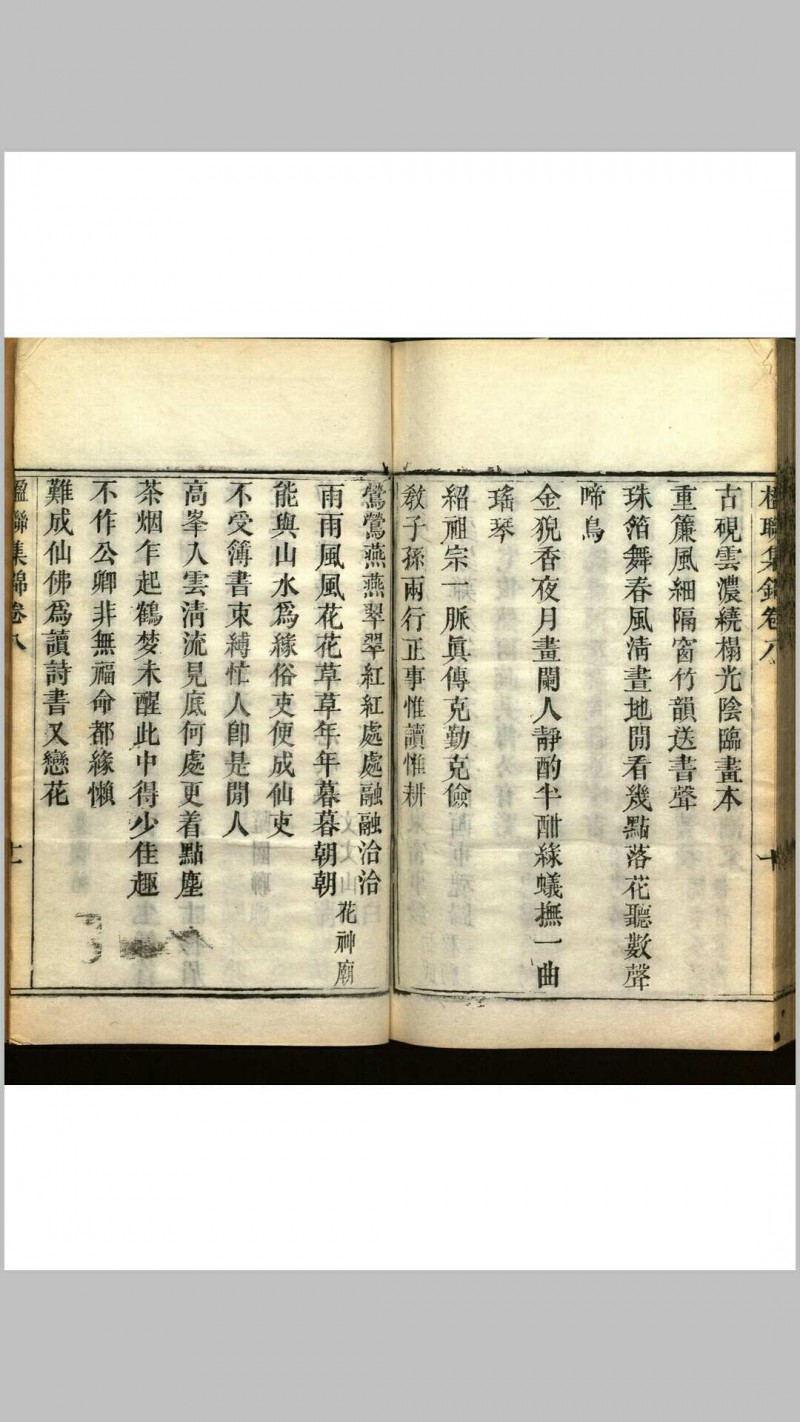 楹聯集錦卷八
十
古硯雲濃繞榻光陰臨畫本
重簾風細隔窗竹韻送書聲
珠箔舞春風淸晝地閒看幾點落花聽數聲
啼鳥
金猊香夜月畫闌人靜酌半酣綠蟻撫一曲
瑤琴
紹祖宗一脈眞傳克勤克儉
敎子孫兩行正事惟讀惟耕
鶯鶯燕燕翠翠紅紅處處融融洽洽
雨雨風風花花草草年年暮暮朝朝 花神廟
能與山水爲緣俗吏便成仙吏
不受簿書束縛忙人卽是閒人
高峯入雲淸流見底何處更着點塵
茶烟乍起鶴夢未醒此中得少佳趣
不作公卿非無福命都緣懶
難成仙佛爲讀詩書又戀花
楹聯集錦卷八
十一